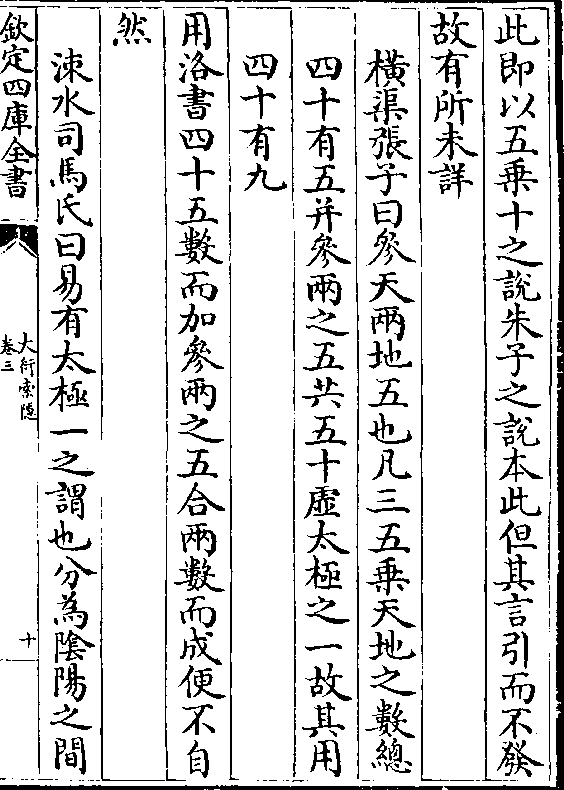 此即以五乗十之說朱子之說本此但其言引而不發
故有所未詳
橫渠張子曰參天兩地五也凡三五乗天地之數總
四十有五并參兩之五共五十虛太極之一故其用
四十有九
用洛書四十五數而加參兩之五合兩數而成便不自
然
涑水司馬氏曰易有太極一之謂也分為陰陽之間
欽定四庫全書
大衍索隱
卷三
十